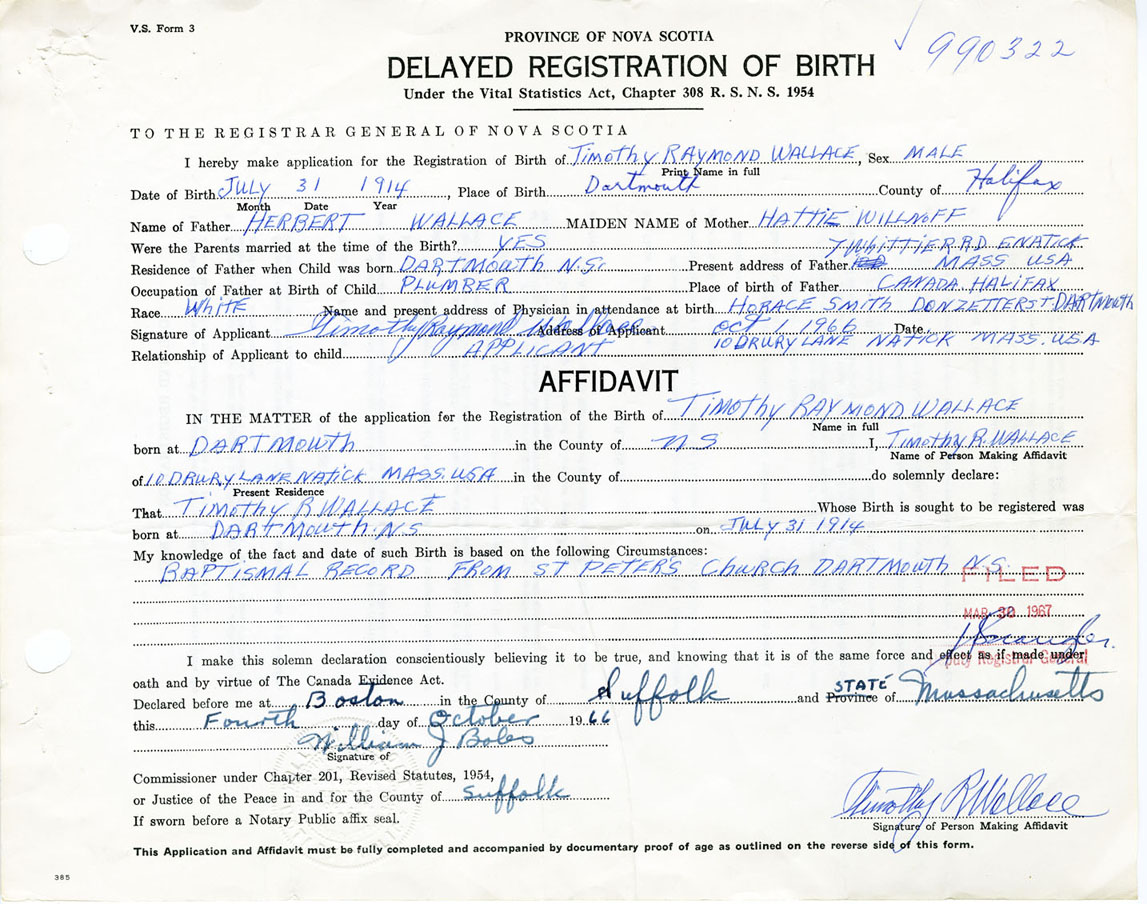 V.S. Form 3
990322
PROVINCE OF NOVA SCOTIA
DELAYED REGISTRATION OF BIRTH
Under the Vital Statistics Act, Chapter 308 R. S. N. S. 1954
TO THE REGISTRAR GENERAL OF NOVA SCOTIA
I hereby make application for the Registration of Birth of TIMOTHY RAYMOND WALLACE, Sex MALE
Print Name in full
Date of Birth JULY 31 1914, Place of Birth Dartmouth County of Halifax
Month Date Year
Name of Father HERBERT WALLACE MAIDEN NAME of Mother HATTIE WILLNOFF
Were the Parents married at the time of the Birth? YES 7 WHITTIER RD ENATICK
Residence of Father when Child was born DARTMOUTH N.S. Present address of Father MASS USA
Occupation of Father at Birth of Child PLUMRER Place of birth of Father CANADA HALIFAX
Race White Name and present address of Physician in attendance at birth HORACE SMITH DONZETTER ST. DARTMOUTH
Signature of Applicant Timothy Raymond Wallace Address of Applicant oct 1 1966 Date
10 DRURY LANE NATICK MASS. USA
Relationship of Applicant to child APPLICANT
AFFIDAVIT
IN THE MATTER of the application for the Registration of the Birth of TIMOTHY RAYMOND WALLACE
Name in full
born at DARTMOUTH in the County of NS I, TIMOTHY R. WALLACE
Name of Person Making Affidavit
of 10 DRURY LANE NATICK MASS. USA in the County of do solemnly declare:
Present Residence
That TIMOTHY R WALLACE Whose Birth is sought to be registered was
born at DARTMOUTH. N.S on JULY 31 1914
My knowledge of the fact and date of such Birth is based on the following Circumstances:
BAPTISMAL RECORD FROM ST PETER'S CHURCH DARTMOUTH N.S.
FILED
MAR 30 1967
I make this solemn declaration conscientiously believing it to be true, and knowing that it is of the same force and effect as if made under
Registrar General
oath and by virtue of The Canada Evidence Act.
Declared before me at Boston in the County of Suffolk and STATE Province of Massachusetts
this Fourth day of October 1966
William J Boles
Signature of
Commissioner under Chapter 201, Revised Statutes, 1954,
or Justice of the Peace in and for the County of Suffolk
If sworn before a Notary Public affix seal.
Timothy R Wallace
Signature of Person Making Affidavit
This Application and Affidavit must be fully completed and accompanied by documentary proof of age as outlined on the reverse side of this form.
385